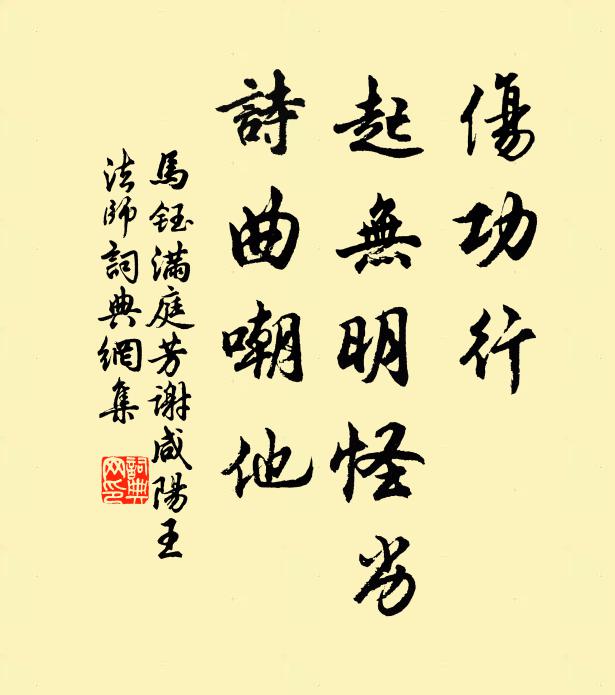 傷功行
起無明怪劣
詩曲嘲他
馬鈺滿庭芳謝咸陽王
法師詞典網集
詞典
网印